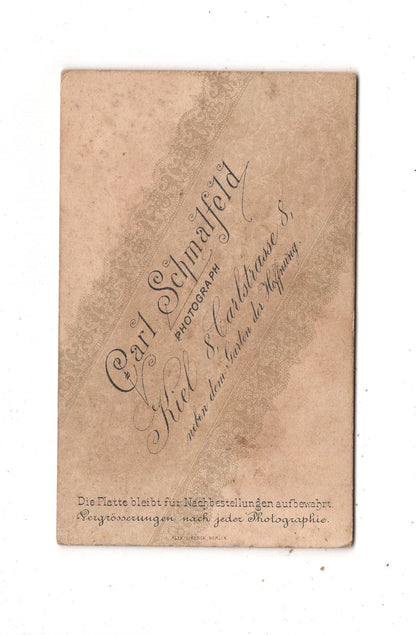 Carl Schmalfeld
PHOTOGRAPH
Kiel 8, Carlstrasse 8,
neben dem Garten der Hoffnung.
Die Platte bleibt für Nachbestellungen aufbewahrt.
Vergrösserungen nach jeder Photographie.
BERLIN